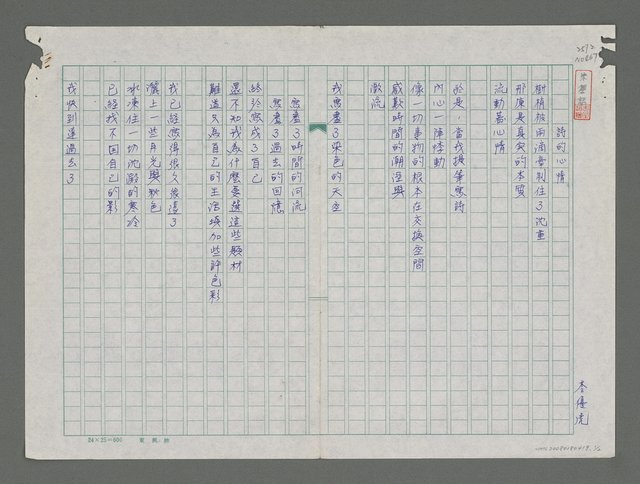 詩的心情
樹梢被雨滴牽制住了沈重
那原是真实的本質
流動著心情
於是，當我提筆寫詩
內心一陣悸動
像一切事物的根本在交換空間
感歎時間的潮溼與
激流
我寫盡了染色的天空
寫盡了時間的河流
寫盡了過去的回憶
終於寫成了自己
還不知我為什麼要選這些題材
難道只為自己的生活填加些許色彩
我已經寫得很久很遠了
灑上一些月光與秋色
冰凍住一切沈澱的寒冷
已經找不回自己的影
我快到達過去了
24×25=600